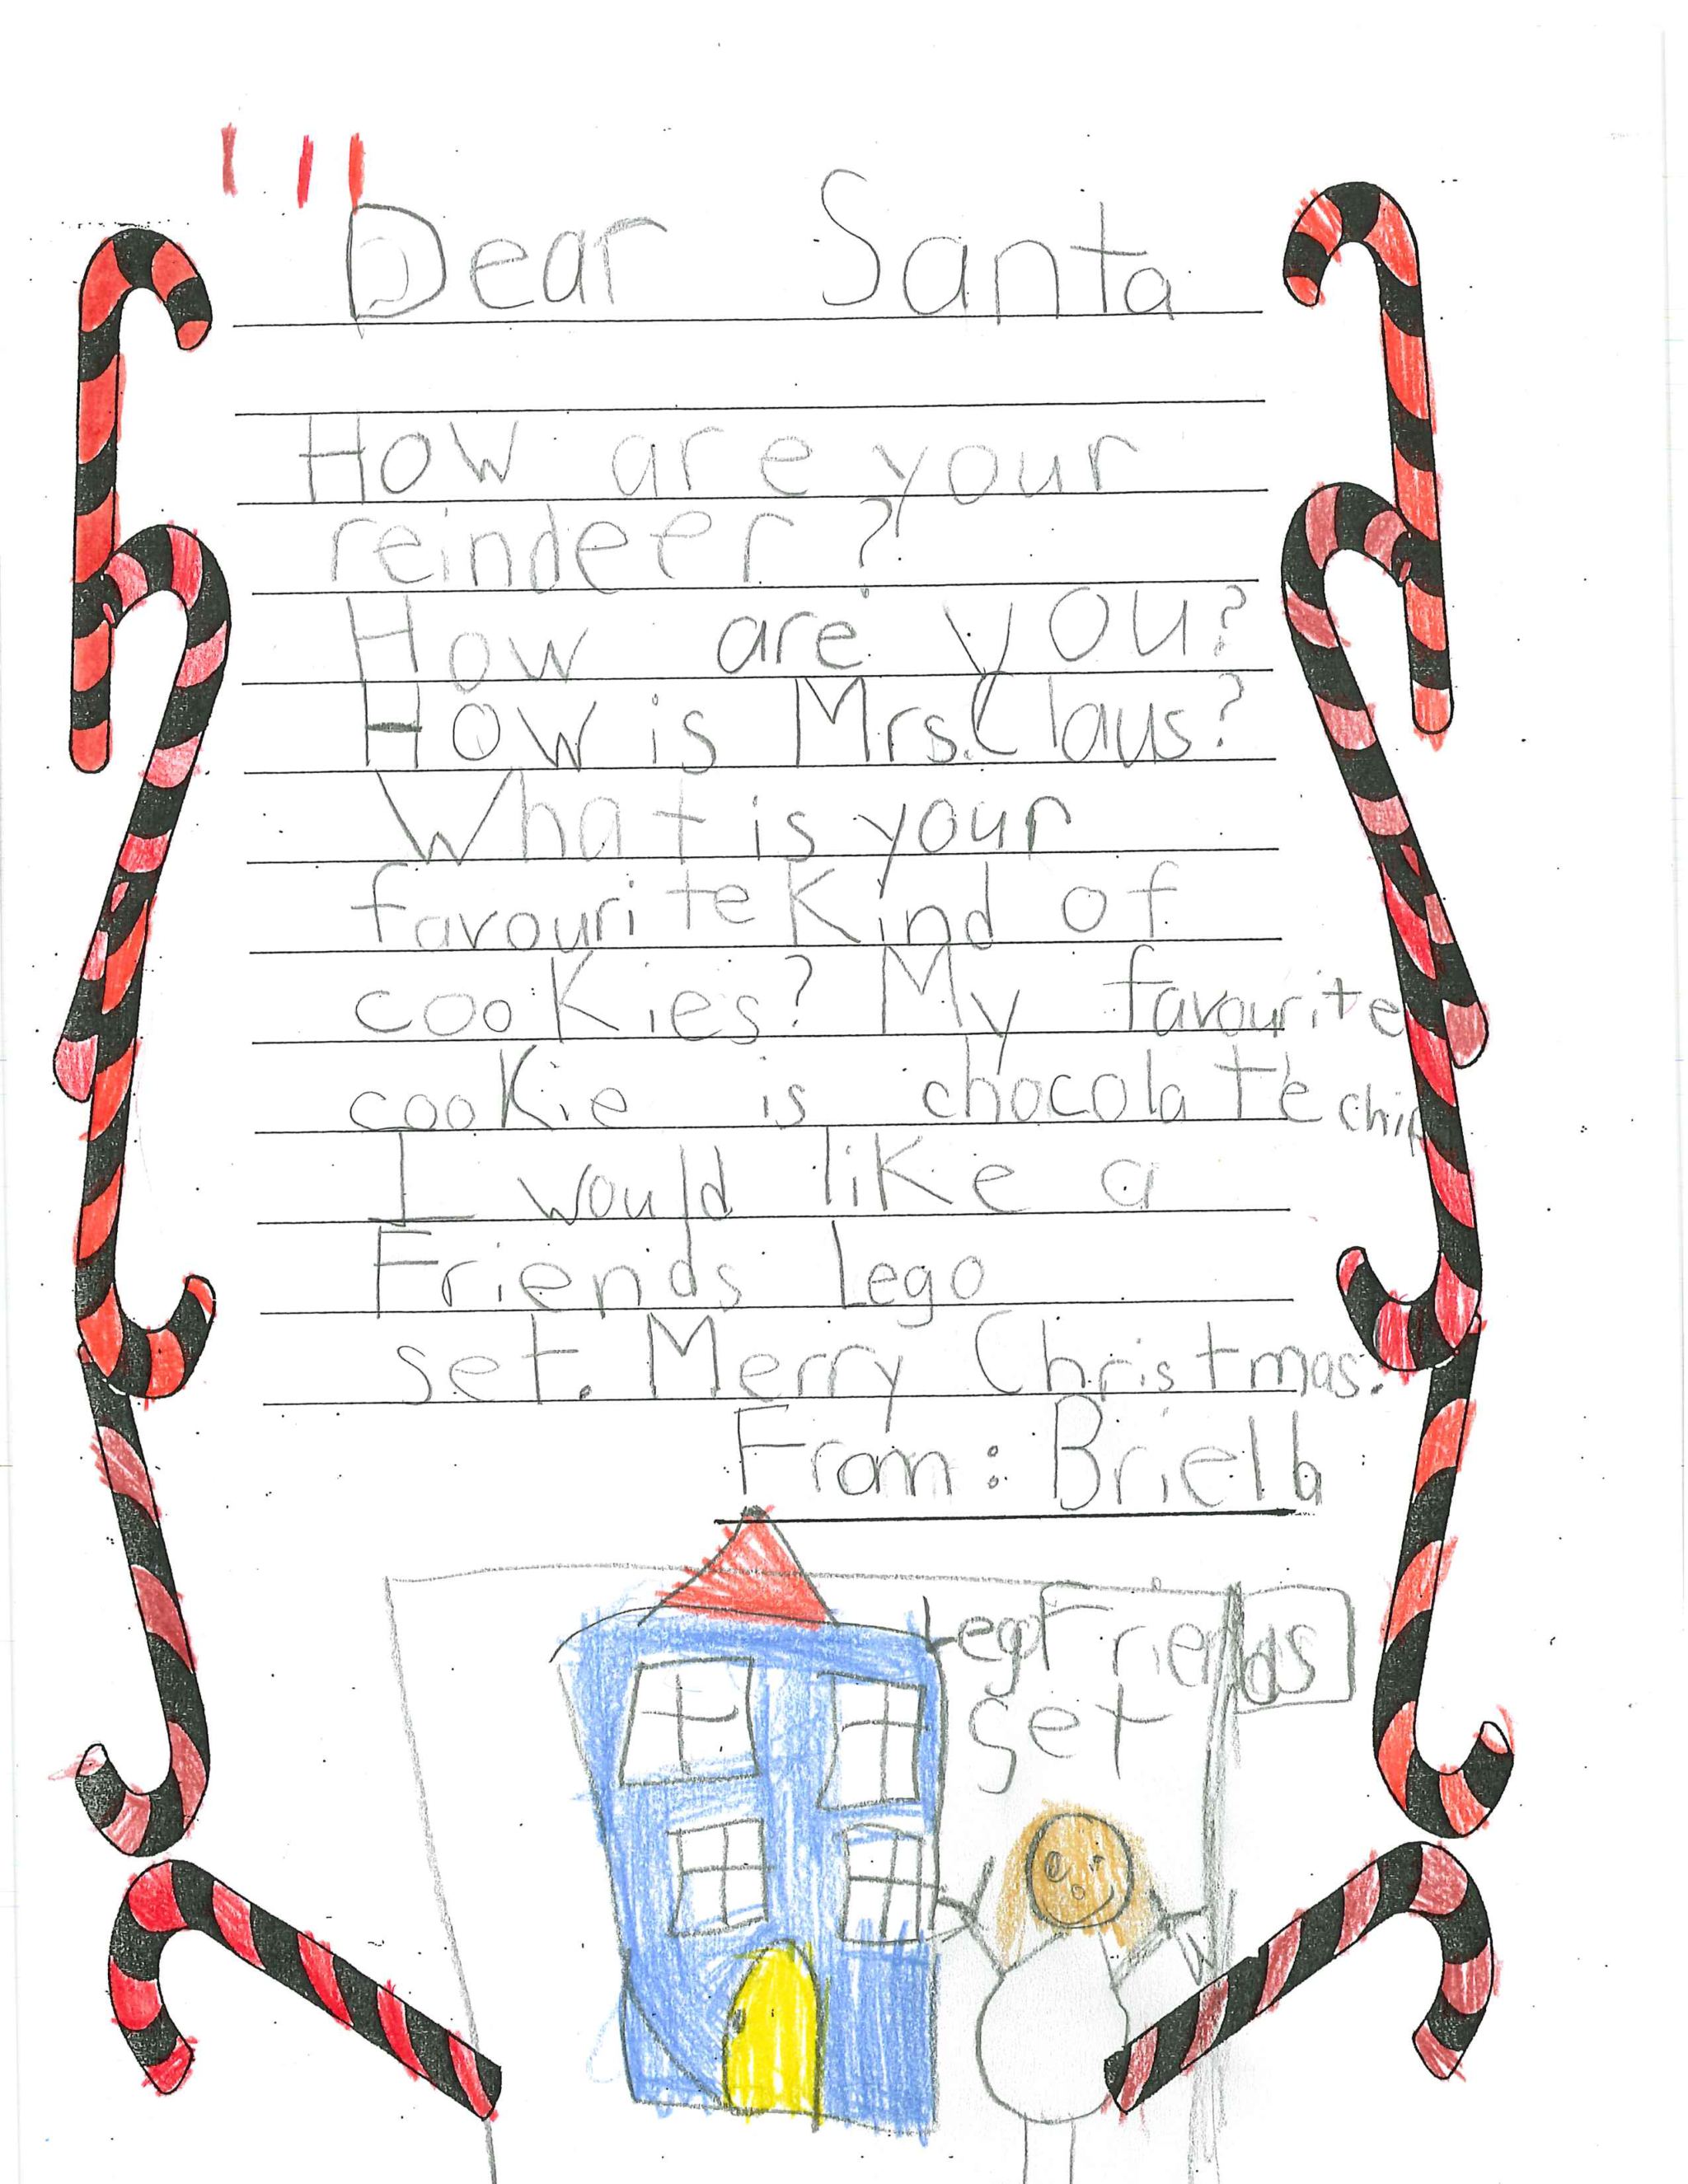 Dear Santa
How are your
reindeer?
How are you?
How is Mrs. Claus?
What is your
favourite kind of
cookies? My favourite
cookie is chocolate chip
I would like a
Friends Lego
set. Merry Christmas.
From: Briella
Lego Friends
set